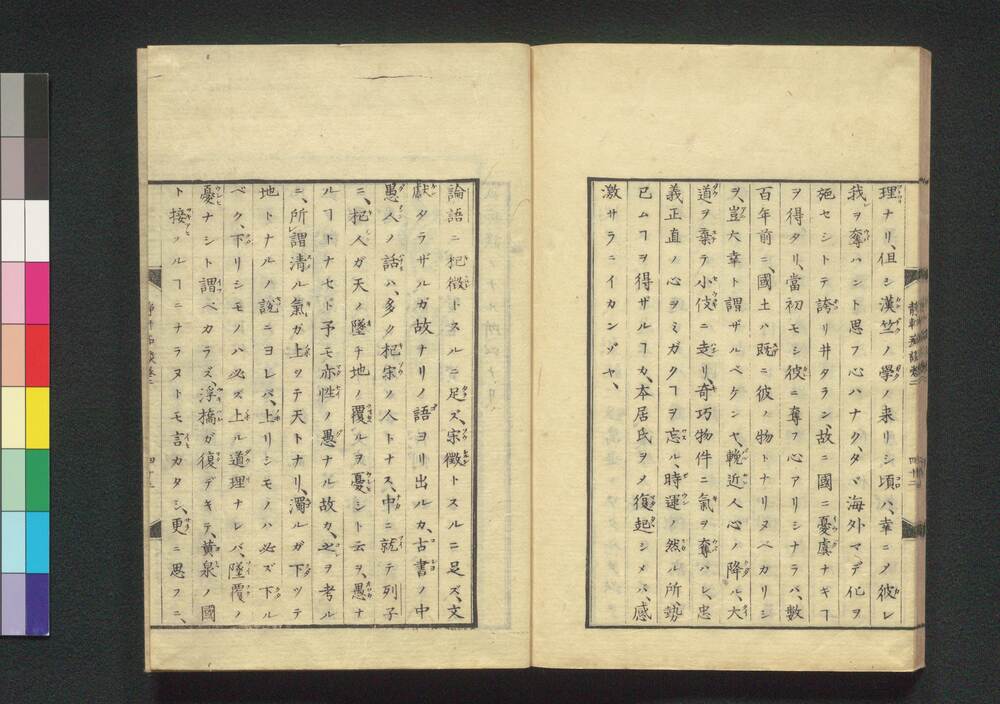 理ナリ、但シ漢竺ノ學ノ来リシ頃ハ、幸ニメ彼レ
我ヲ奪ハント思フ心ハナク、タヾ海外マデ化ヲ
施セシトテ誇リ井タラン、故ニ國ニ憂虞ナキヿ
ヲ得タリ、當初モシ彼ニ奪フ心アリシナラバ、數
百年前ニ、國土ハ既ニ彼ノ物トナリヌベカリシ
ヲ、豈大幸ト謂ザルベケンヤ、輓近人心ノ降ル、大
道ヲ棄テ小伎ニ走リ、奇巧物件ニ氣ヲ奪ハレ、忠
義正直ノ心ヲミガクヿヲ忘ル、時運ノ然ル所勢
已ムヿヲ得ザルヿカ、本居氏ヲメ復起シメバ、感
激サラニイカンゾヤ、
論語ニ杞徴トスルニ足ズ、宋徴トスルニ足ズ、文
献タラザルガ故ナリノ語ヨリ出ルカ、古書ノ中
愚人ノ話ハ、多ク杞宋ノ人トナス、中ニ就テ列子
ニ、杞人ガ天ノ墜チ地ノ覆ルヲ憂シト云ヲ、愚ナ
ルヿトナセド予モ亦性ノ愚ナル故カ、之ヲ考ル
ニ、所謂清ル氣ガ上ツテ天トナリ、濁ルガ下ツテ
地トナルノ説ニヨレバ、上リシモノハ必ズ下ル
ベク、下リシモノハ必ズ上ル道理ナレバ、墜覆ノ
憂ナシト謂ベカラズ、浮橋ガ復デキテ、黄泉ノ國
ト接ソルヿニナラヌトモ言カタシ、更ニ思フニ、